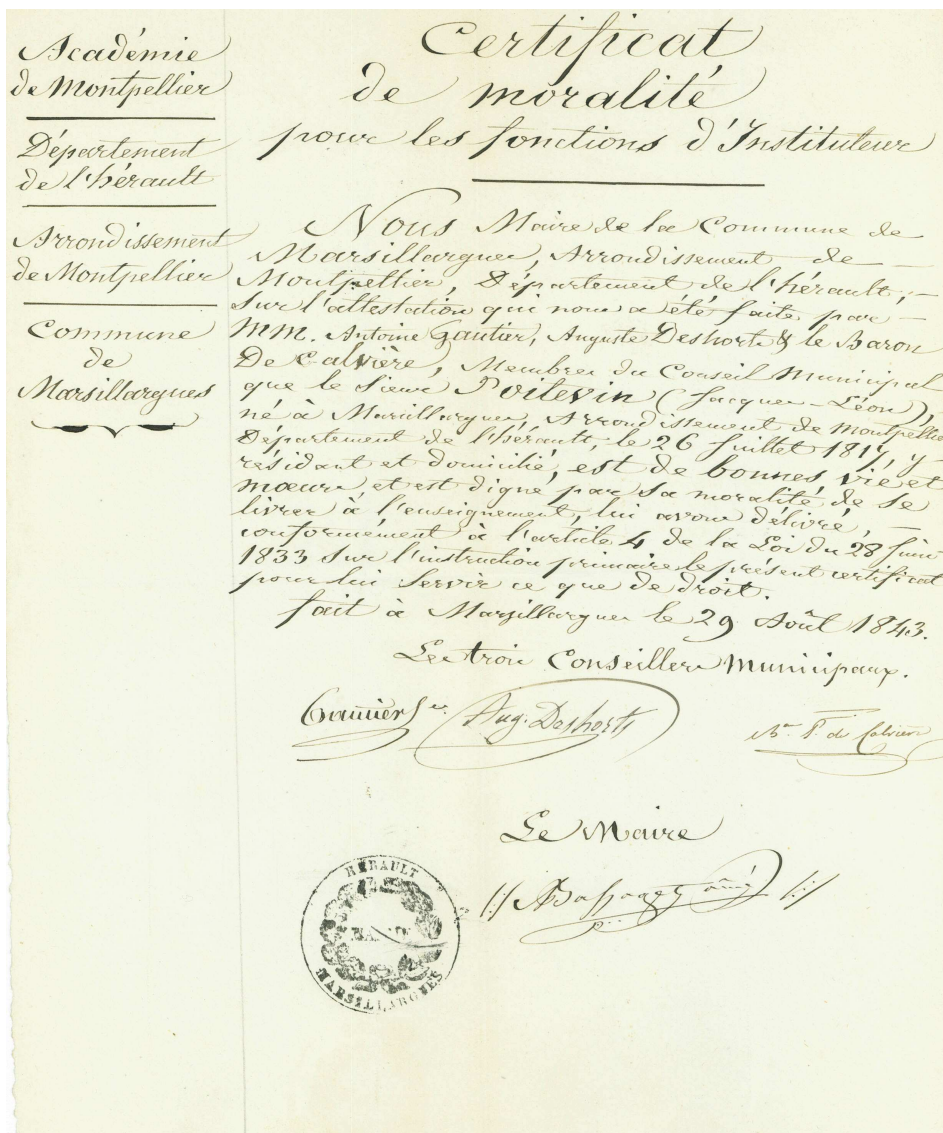 Académie
de Montpellier
Département
de l'hérault
Arrondissement
de Montpellier
Commune
de
Marsillargues
Certificat
de moralité
pour les fonctions d'Instituteur
Nous Maire de la Commune de
Marsillargues, Arrondissement de —
Montpellier, Département de l'hérault, —
Sur l'attestation qui nous a été faite par —
MM. Antoine Gautier, Auguste Deshorts & le Baron
De Calvière, Membres du Conseil Municipal
que le Sieur Poitevin (Jacques-Léon),
né à Marsillargues, Arrondissement de Montpellier
Département de l'hérault, le 26 Juillet 1817, y —
résidant et domicilié, est de bonnes vie et
mœurs et est digne par sa moralité de se
livrer à l'enseignement, lui avons délivré, —
conformément à l'article 4 de la Loi du 28 Juin
1833 sur l'instruction primaire le présent certificat
pour lui servir ce que de droit.
fait à Marsillargues le 29 Août 1843.
Les trois Conseillers Municipaux.
Aug. Deshorts
Bon P. de Calvière
Le Maire
HÉRAULT
MAIRIE
MARSILLARGUES